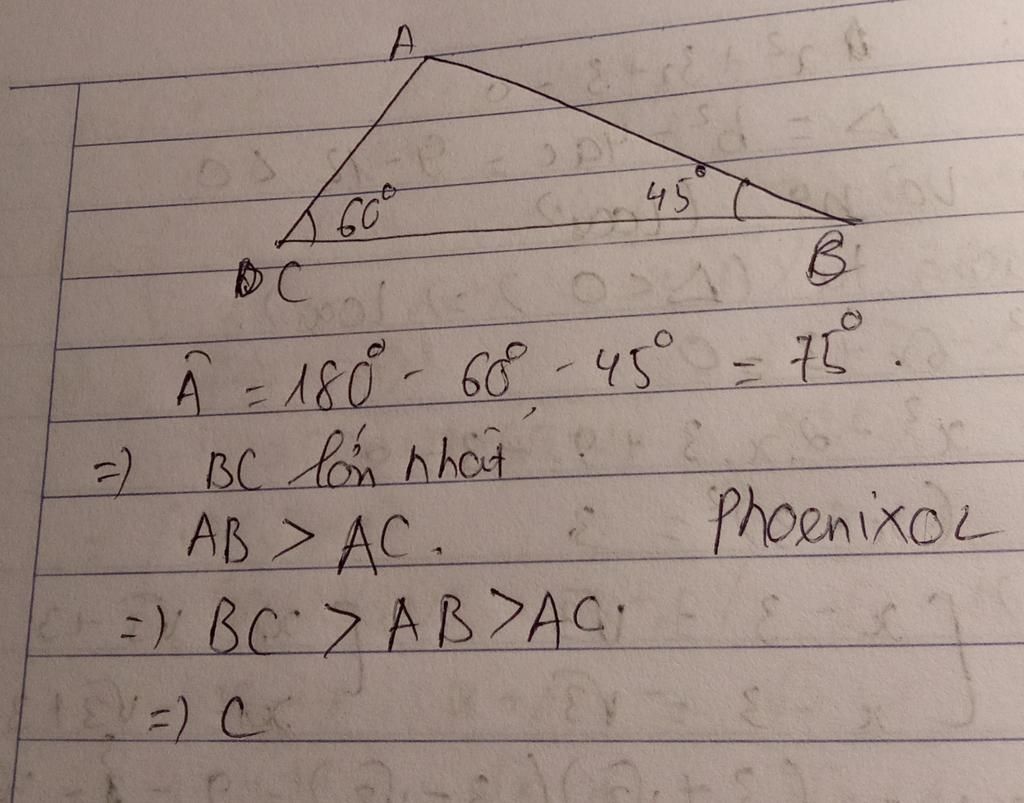 A
60° 45°
C B
Â = 180° - 60° - 45° = 75°.
=) BC lớn nhất
AB > AC.
PhoenixOL
=) BC > AB > AC.
=) C